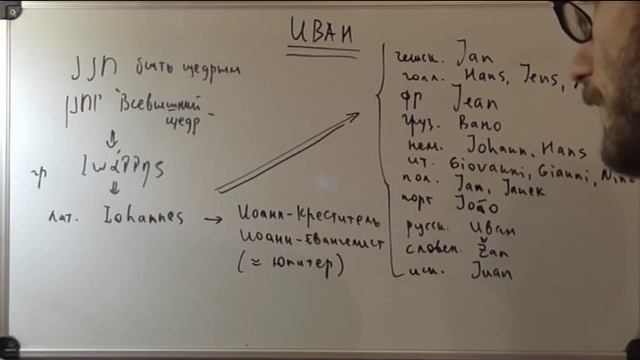 ИВАН
חנן быть щедрым
יוחנן "Всевышний щедр"
гр Ιωάννης
лат. Iohannes → Иоанн-Креститель
Иоанн-Евангелист
(≈ Юпитер)
чешск. Jan
голл. Hans, Jens,
фр Jean
груз. Вано
нем. Johann, Hans
ит. Giovanni, Gianni, Nino
пол. Jan, Janek
порт João
русск. Иван
словен. Žan
исп. Juan